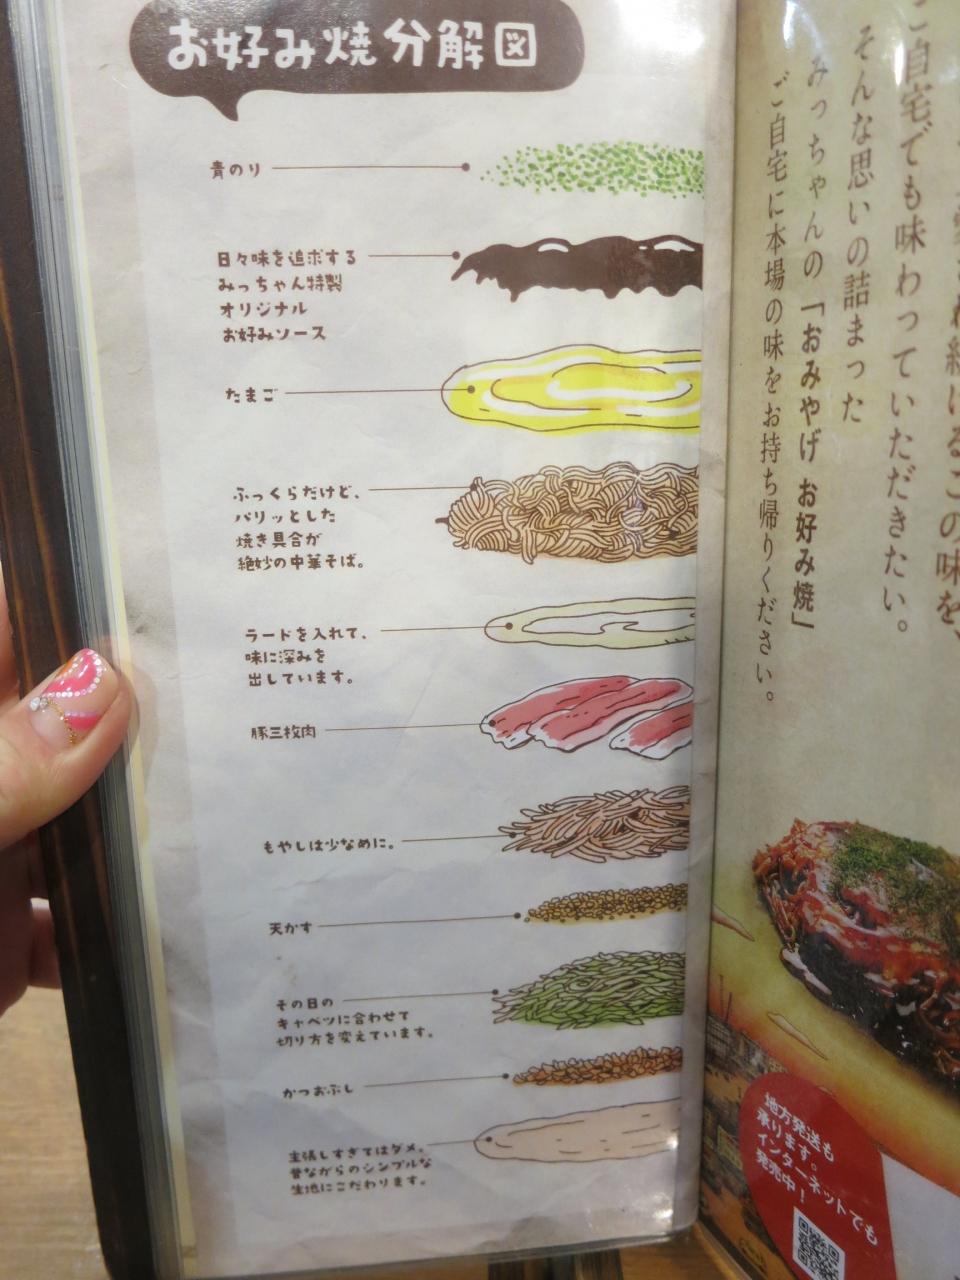 お好み焼分解図
青のり
日々味を追求する
みっちゃん特製
オリジナル
お好みソース
たまご
ふっくらだけど、
パリッとした
焼き具合が
絶妙の中華そば。
ラードを入れて、
味に深みを
出しています。
豚三枚肉
もやしは少なめに。
天かす
その日の
キャベツに合わせて
切り方を変えています。
かつおぶし
主張しすぎてはダメ。
昔ながらのシンプルな
生地にこだわります。
ご自宅でも味わっていただきたい。
そんな思いの詰まった
みっちゃんの「おみやげ お好み焼」
ご自宅に本場の味をお持ち帰りください。
地方発送も
承ります。
インターネットでも
発売中!